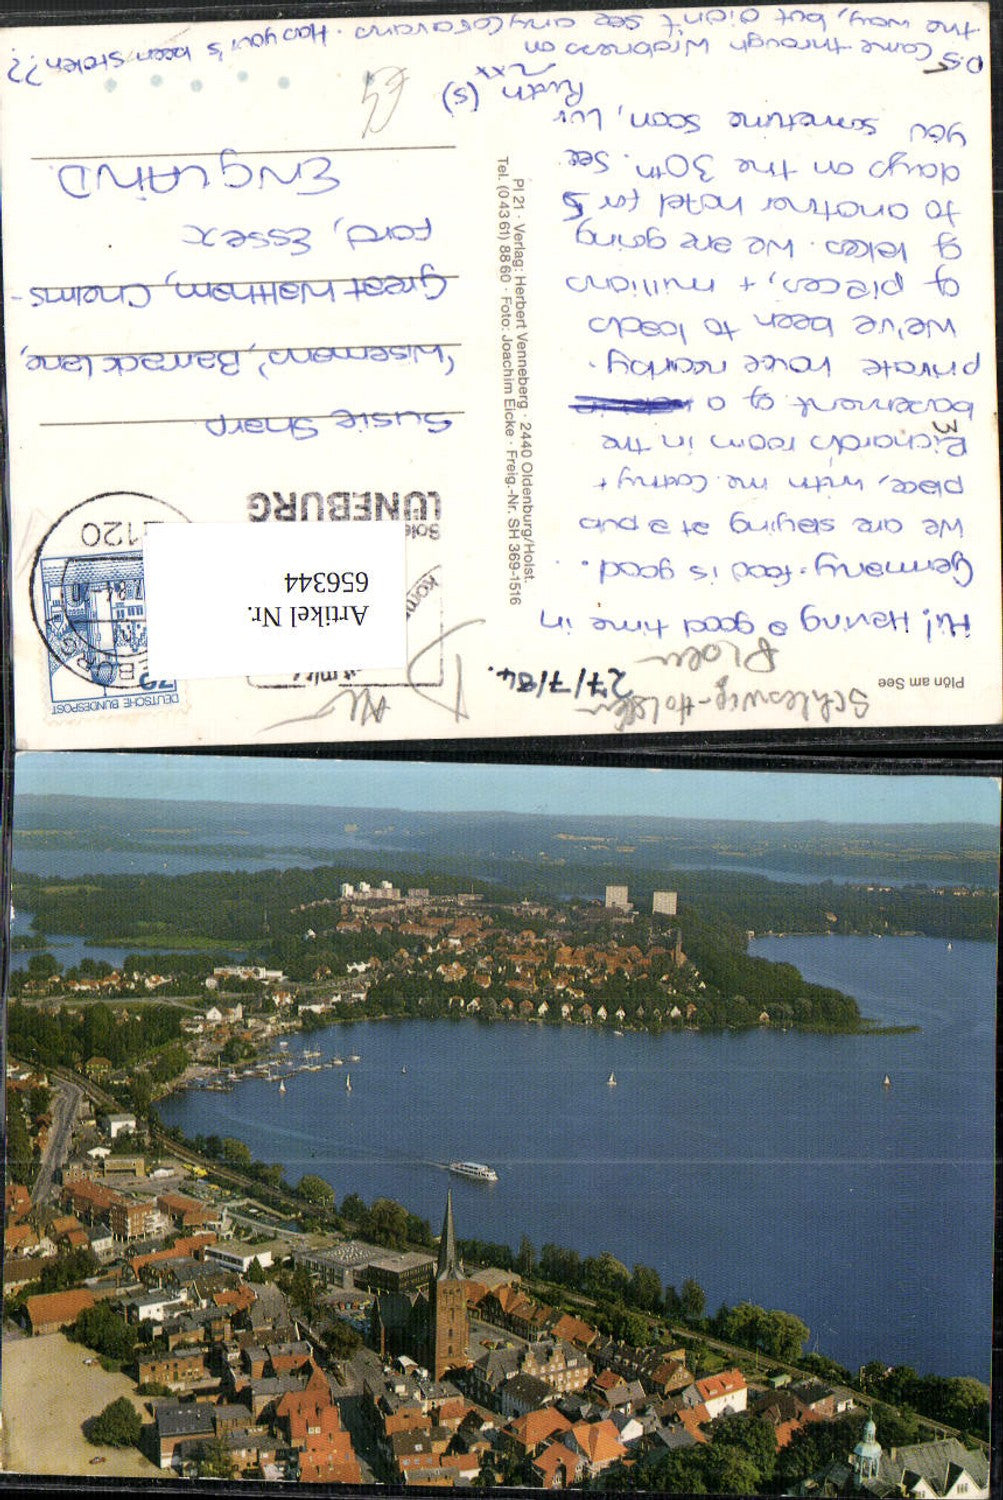 Plön am See
Schleswig-Holstein
Ploen
27/7/84.
Hi! Having a good time in
Germany. food is good.
We are staying at a pub
place, with me. Cathy +
Richard's room in the
basement of a
private house nearby.
We've been to loads
of places, + millions
of lakes. We are going
to another hotel for 5
days on the 30th. See
you sometime soon, luv
Ruth (s)
xxx
P.S Came through Wrabness on
the way, but didn't see any caravans. Has your's been stolen??
Pl 21 · Verlag: Herbert Venneberg · 2440 Oldenburg/Holst.
Tel. (0 43 61) 88 60 · Foto: Joachim Eicke · Freig.-Nr. SH 369-1516
DEUTSCHE BUNDESPOST
2120
LÜNEBURG
Artikel Nr.
656344
Susie Sharp
'Wisemans', Barrack Lane,
Great Waltham, Chelms-
ford, Essex
ENGLAND